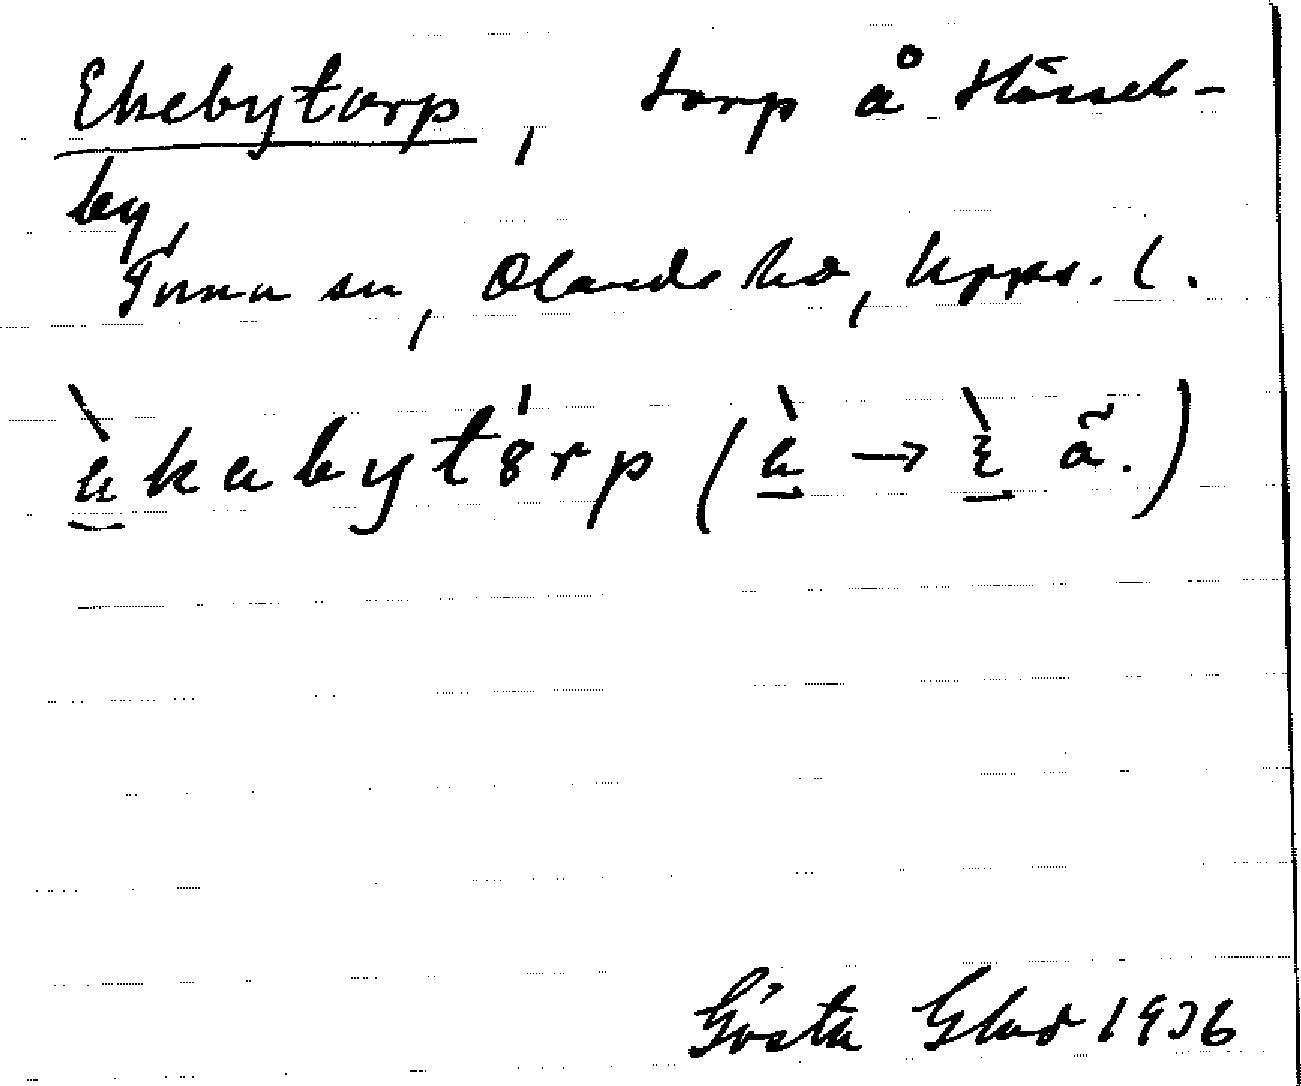 Ekebytorp, torp å Hässel-
by,
Tuna sn, Olands hd, Upps. l.
Gösta Glad 1936